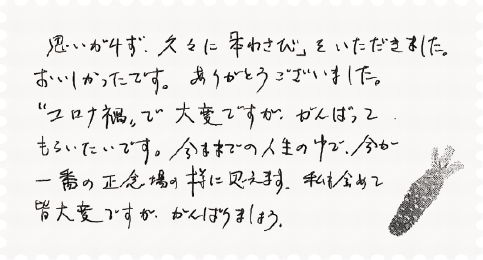 思いがけず、久々に「本わさび」をいただきました。
おいしかったです。ありがとうございました。
"コロナ禍"で大変ですが、がんばって
もらいたいです。今までの人生の中で、今が
一番の正念場の様に思えます。私も含めて
皆大変ですが、がんばりましょう。